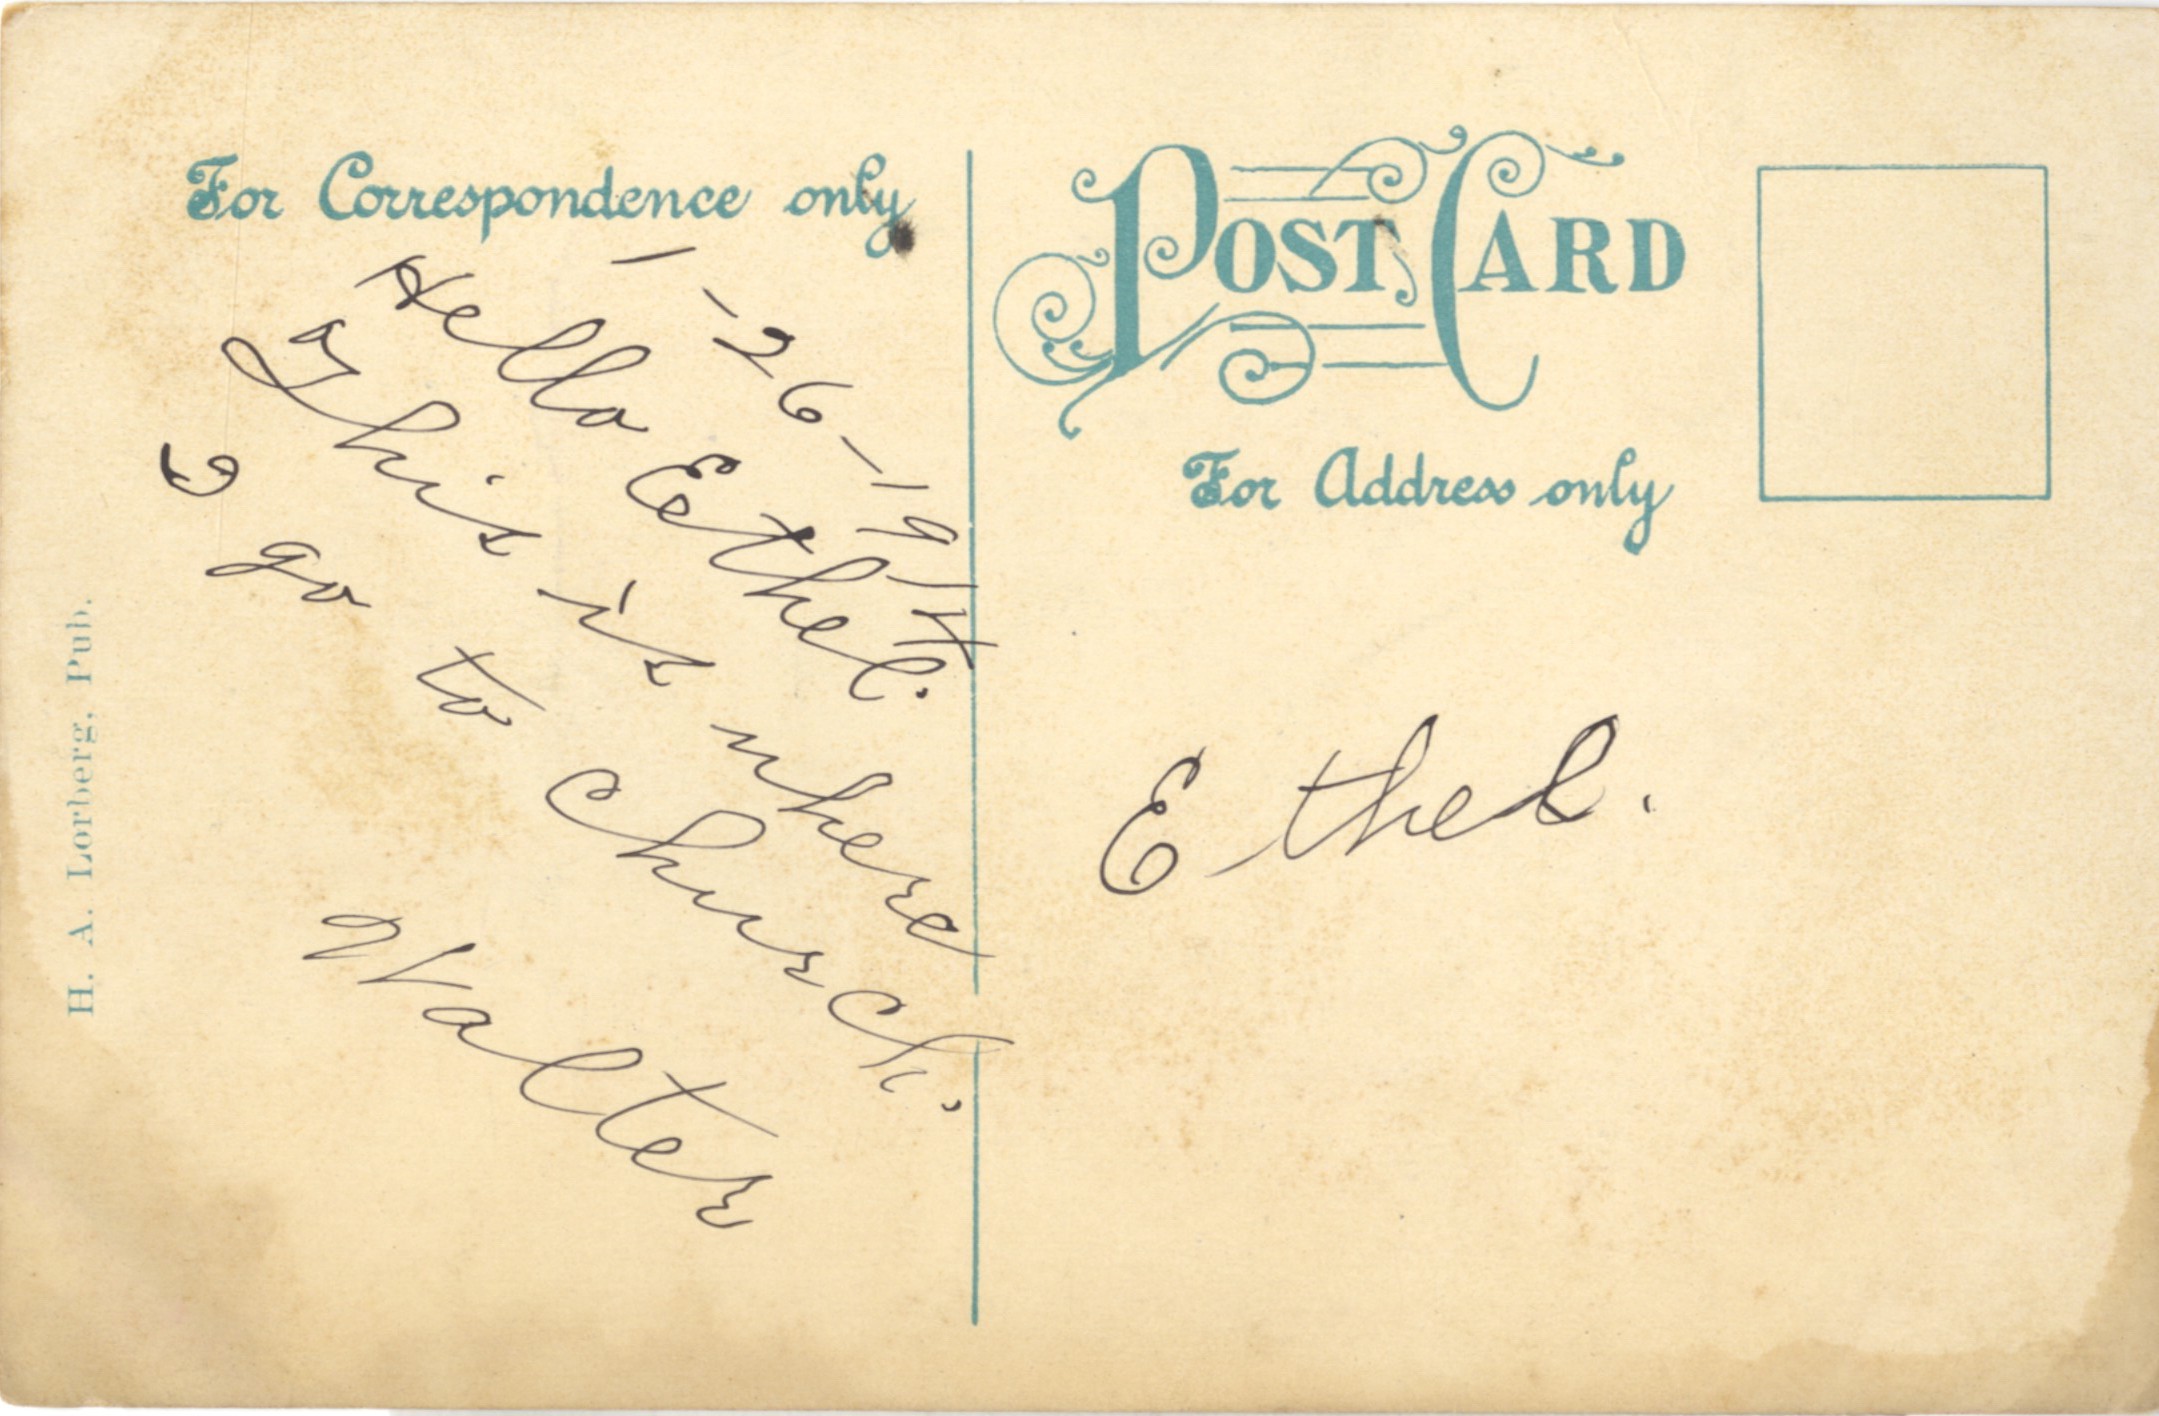 For Correspondence only
POST CARD
For Address only
1-26-1914
Hello Eethel.
This is where
I go to
church.
Walter
Ethel.
H. A. Lorberg, Pub.